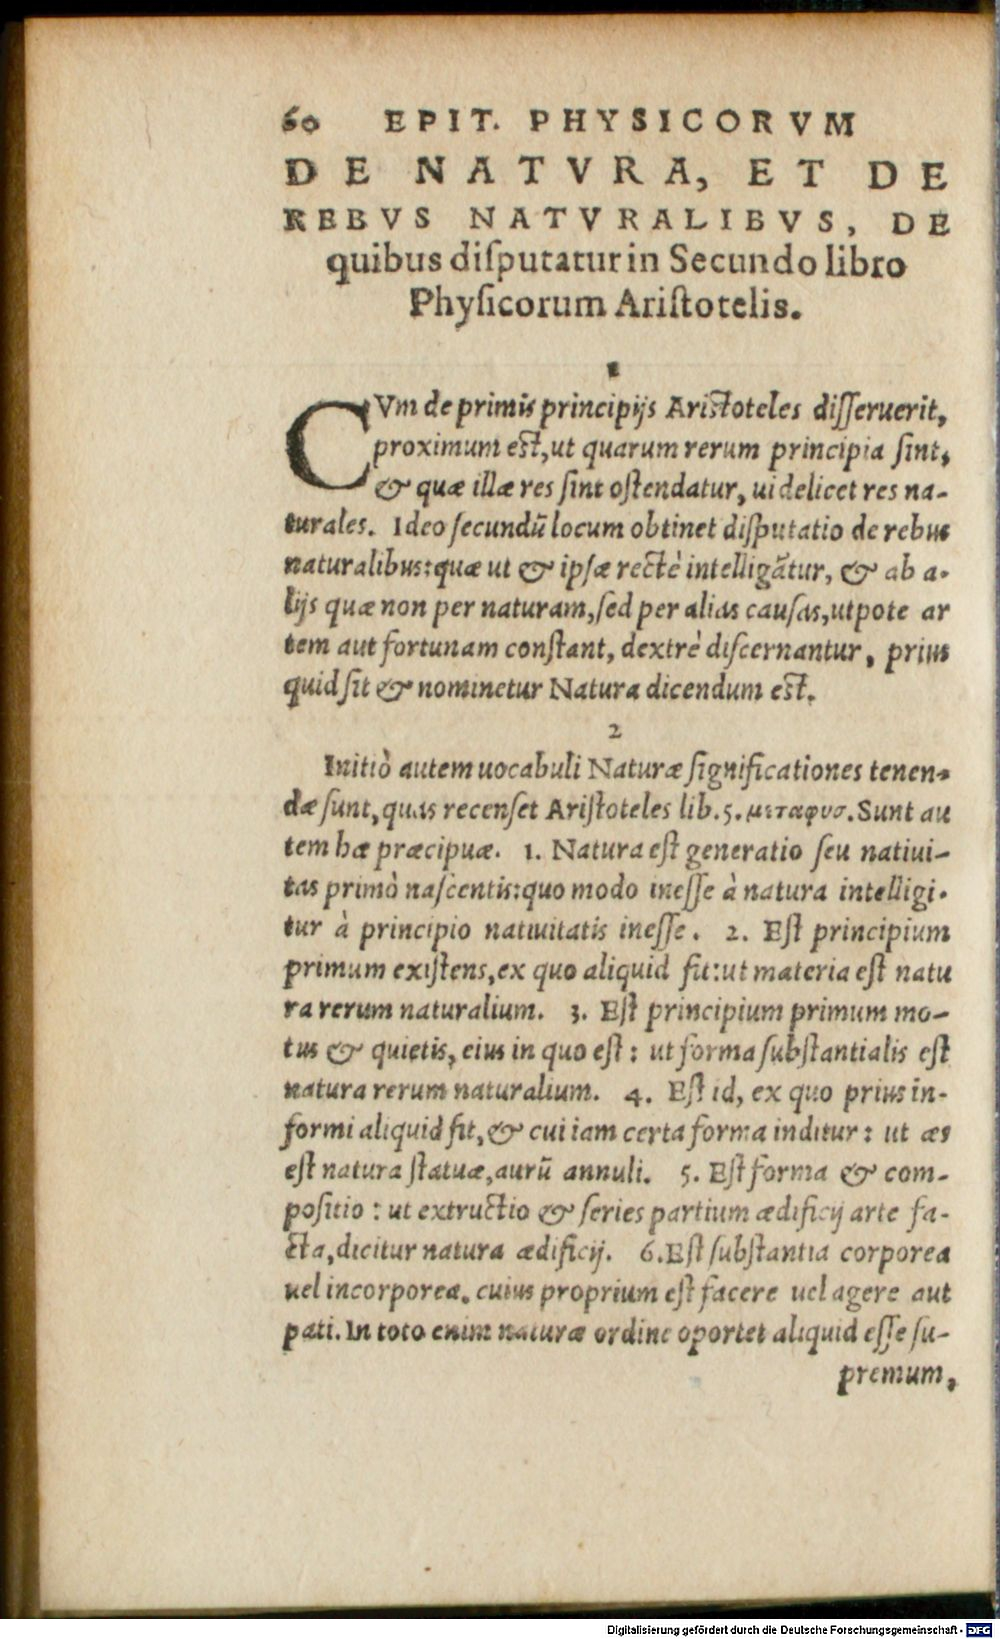 60 EPIT. PHYSICORVM
DE NATVRA, ET DE
REBVS NATVRALIBVS, DE
quibus diſputatur in Secundo libro
Phyſicorum Ariſtotelis.
1
CVm de primis principijs Ariſtoteles diſſeruerit,
proximum eſt, ut quarum rerum principia ſint,
& quæ illæ res ſint oſtendatur, uidelicet res na-
turales. Ideo ſecundũ locum obtinet diſputatio de rebus
naturalibus: quæ ut & ipſæ rectè intelligãtur, & ab a-
lijs quæ non per naturam, ſed per alias cauſas, utpote ar
tem aut fortunam conſtant, dextrè diſcernantur, prius
quid ſit & nominetur Natura dicendum eſt.
2
Initiò autem uocabuli Naturæ ſignificationes tenen-
dæ ſunt, quas recenſet Ariſtoteles lib. 5. μεταφυσ. Sunt au
tem hæ præcipuæ. 1. Natura eſt generatio ſeu natiui-
tas primò naſcentis: quo modo ineſſe à natura intelligi-
tur à principio natiuitatis ineſſe. 2. Eſt principium
primum exiſtens, ex quo aliquid fit: ut materia eſt natu
ra rerum naturalium. 3. Eſt principium primum mo-
tus & quietis, eius in quo eſt: ut forma ſubſtantialis eſt
natura rerum naturalium. 4. Eſt id, ex quo prius in-
formi aliquid fit, & cui iam certa forma inditur: ut æs
eſt natura ſtatuæ, aurũ annuli. 5. Eſt forma & com-
poſitio: ut extructio & ſeries partium ædificij arte fa-
cta, dicitur natura ædificij. 6. Eſt ſubſtantia corporea
uel incorporea. cuius proprium eſt facere uel agere aut
pati. In toto enim naturæ ordine oportet aliquid eſſe ſu-
premum,
Digitalisierung gefördert durch die Deutsche Forschungsgemeinschaft - DFG